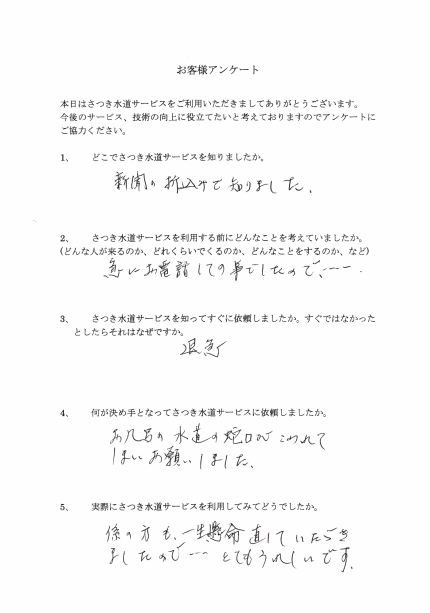 お客様アンケート
本日はさつき水道サービスをご利用いただきましてありがとうございます。
今後のサービス、技術の向上に役立てたいと考えておりますのでアンケートに
ご協力ください。
1、 どこでさつき水道サービスを知りましたか。
新聞の折込みで知りました、
2、 さつき水道サービスを利用する前にどんなことを考えていましたか。
(どんな人が来るのか、どれくらいでくるのか、どんなことをするのか、など)
急にお電話しての事でしたので、----.
3、 さつき水道サービスを知ってすぐに依頼しましたか。すぐではなかった
としたらそれはなぜですか。
急
4、 何が決め手となってさつき水道サービスに依頼しましたか。
お の水道の 口がこわれて
しまいお願いしました、
5、 実際にさつき水道サービスを利用してみてどうでしたか。
係の方も、一生懸命直していただき
ましたので--- とてもうれしいです.